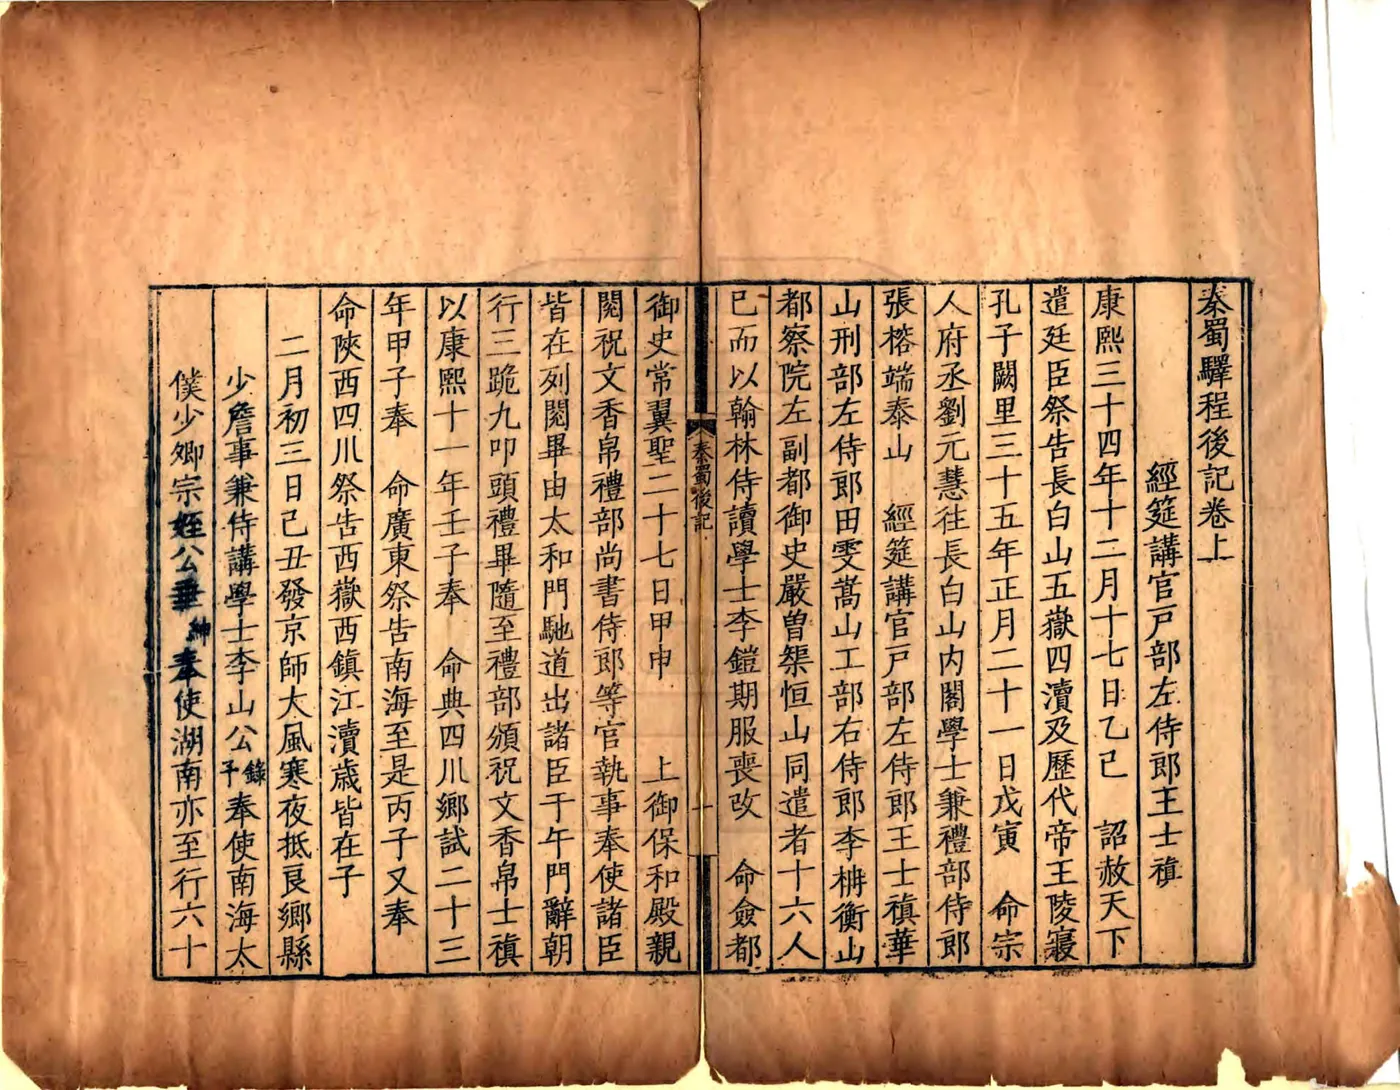 秦蜀驛程後記卷上
經筵講官戶部左侍郎王士禛
康熙三十四年十二月十七日乙巳　詔赦天下
遣廷臣祭告長白山五嶽四瀆及歷代帝王陵寢
孔子闕里三十五年正月二十一日戊寅　命宗
人府丞劉元慧往長白山內閣學士兼禮部侍郎
張榕端泰山　經筵講官戶部左侍郎王士禛華
山刑部左侍郎田雯嵩山工部右侍郎李柟衡山
都察院左副都御史嚴曾榘恒山同遣者十六人
已而以翰林侍讀學士李鎧期服喪改　命僉都
秦蜀後記
一
御史常翼聖二十七日甲申　上御保和殿親
閱祝文香帛禮部尚書侍郎等官執事奉使諸臣
皆在列閱畢由太和門馳道出諸臣于午門辭朝
行三跪九叩頭禮畢隨至禮部頒祝文香帛士禛
以康熙十一年壬子奉　命典四川鄉試二十三
年甲子奉　命廣東祭告南海至是丙子又奉
命陝西四川祭告西嶽西鎮江瀆歲皆在子
二月初三日己丑發京師大風寒夜抵良鄉縣
少詹事兼侍講學士李山公錄予奉使南海太
僕少卿宗姪公垂紳奉使湖南亦至行六十